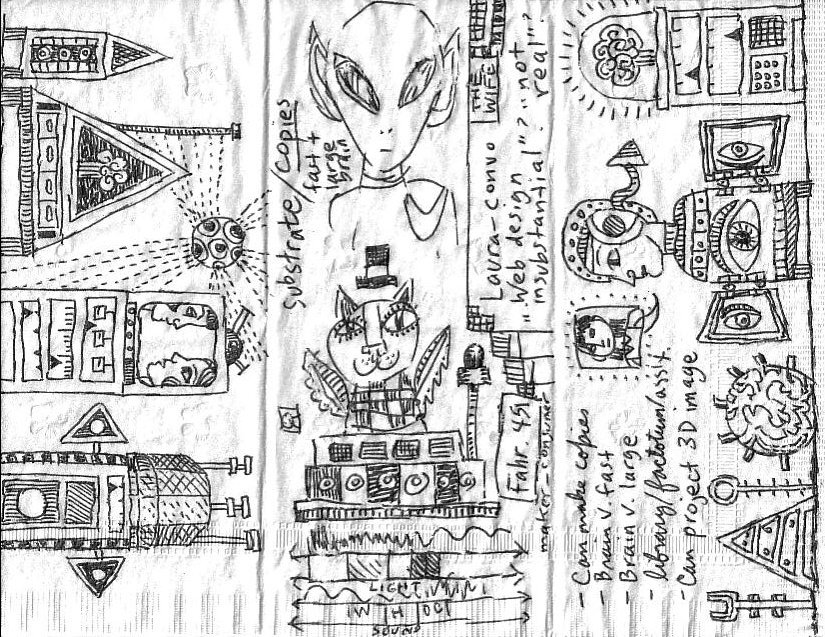 Substrate/copies
fast +
large
brain
THE
WIFE
Laura-convo
"Web design"? "not
insubstantial" real"?
Fahr. 451
maker-consumer
LIGHT
SOUND
- Can make copies
- Brain v. fast
- Brain v. large
- library/factotum/asst
- Can project 3D image